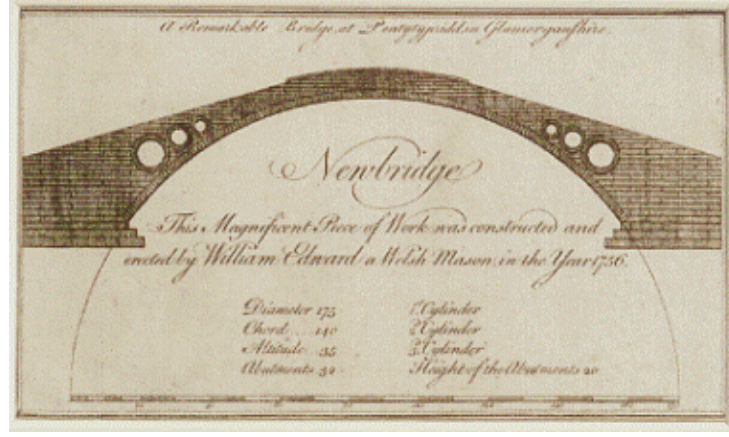 A Remarkable Bridge, at Pontytypridd in Glamorganshire.
Newbridge
This Magnificent Piece of Work was constructed and
erected by William Edward a Welsh Mason, in the Year 1756.
Diameter 175
Chord 140
Altitude 35
Abutments 32
1st Cylinder
2d Cylinder
3d Cylinder
Height of the Abutments 20